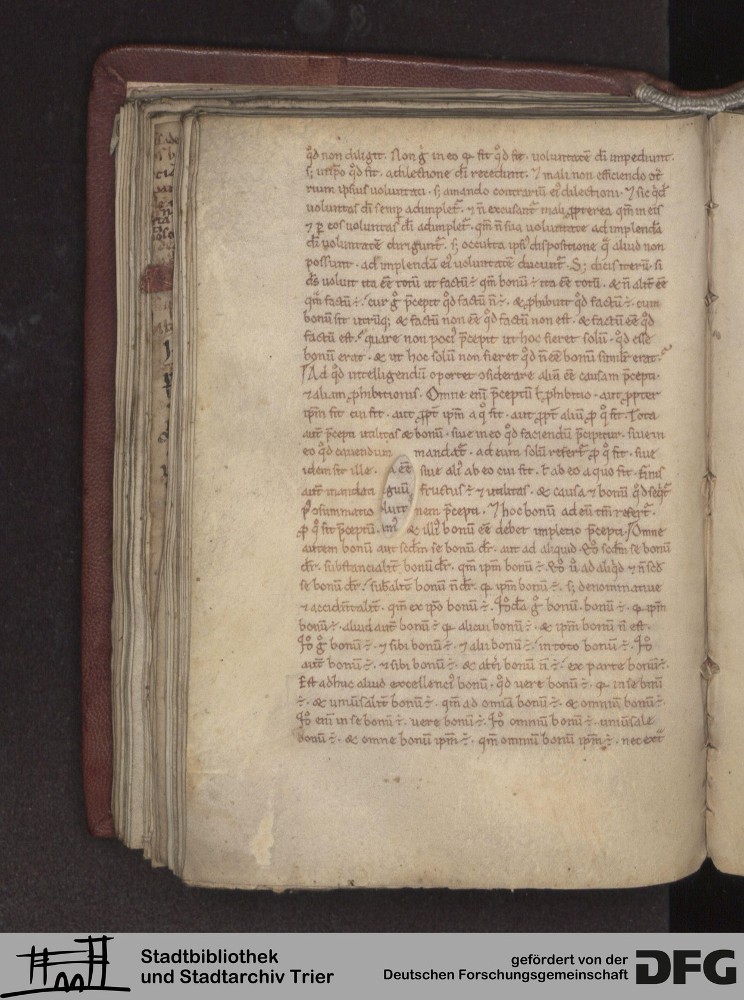 qd non diligit. Non g in eo qd fit qd fit. voluntatē di impediunt.
s; in ipso qd fit. a dilectione di recedunt. ⁊ mali non efficiendo
trium ipsius voluntati. s; amando contrariū ei dilectioni. ⁊ sic qd
voluntas di semp adimplet. ⁊ n excusant mali. ppterea qm in eis
⁊ p eos voluntas di adimplet. qm n sua voluntate ad implendā
di voluntatē dirigunt. s; occulta ipsi dispositione q aliud non
possunt. ad implendā ei voluntatē ducunt. S; dicis iterū. si
ds voluit ita eē totū ut factū ÷. qm bonū ÷ ita eē totū. & n alit eē
qm factū ÷. cur g pcepit qd factū n ÷. & phibuit qd factū ÷. cum
bonū sit utrūq; & factū non eē qd factū non est. & factū eē qd
factū est. quare non poci pcepit ut hoc fieret solū. qd esse
bonū erat. & ut hoc solū non fieret qd n eē bonū similr erat.
Ad qd intelligendū oportet considerare aliā eē causam pcepti.
⁊ aliam phibitionis. Omne eni pceptū ł phibitio. aut propter
ipm fit cui fit. aut ppt ipm a q fit. aut ppt aliū p q fit. Tota
aut pcepti utilitas & bonū. siue in eo qd faciendū pcipitur. siue in
eo qd cauendum mandat. ad eum solū refert p q fit. siue
idem sit ille. eē siue ali ab eo cui fit. ł ab eo a quo fit. Finis
aut mandati fructus ÷ ⁊ utilitas. & causa ⁊ bonū qd seqt
p osummatio nem pcepti. ⁊ hoc bonū ad eū tm refert.
p q fit pceptū. & illi bonū eē debet impletio pcepti. Omne
autem bonū aut scdm se bonū dr. aut ad aliquid qd scdm se bonū
dr. substancialit bonū dr. qm ipm bonū ÷. qd u ad aliqd ⁊ n scd
se bonū dr. subalit bonū n dr. q ipm bonū ÷. s; denominatiue
⁊ accidentalit. qm ex ipo bonū ÷. g bonū. bonū ÷. q ipm
bonū ÷. aliud aut bonū ÷ q alicui bonū ÷. & ipm bonū n est.
Id g bonū ÷. ⁊ sibi bonū ÷. ⁊ alii bonū ÷. in toto bonū ÷. Id
aut bonū ÷. ⁊ sibi bonū ÷. & alteri bonū n ÷. ex parte bonū ÷.
Est adhuc aliud excellencius bonū. qd uere bonū ÷. q in se bonū
÷. & uniuersalit bonū ÷. qm ad omnia bonū ÷. & omniū bonū ÷.
Id eni in se bonū ÷. uere bonū ÷. Id omniū bonū ÷. uniuersale
bonū ÷. & omne bonū ipm ÷. qm omniū bonū ipm ÷. nec ext
Stadtbibliothek
und Stadtarchiv Trier
gefördert von der
Deutschen Forschungsgemeinschaft
DFG